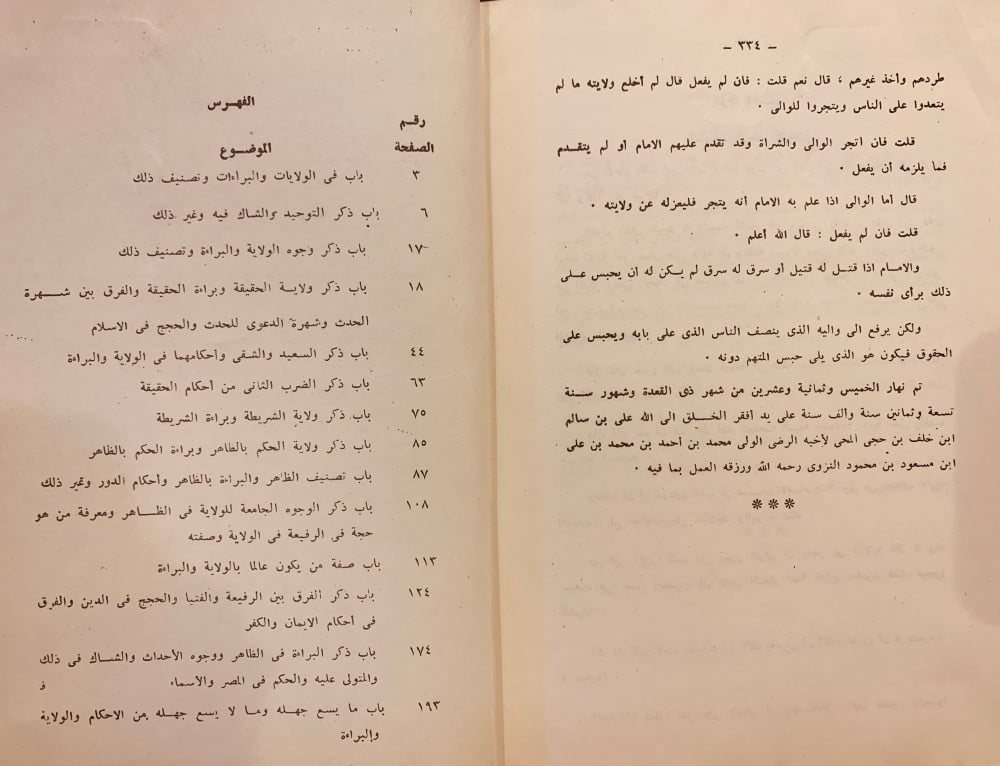 — ٣٣٤ —
طردهم وأخذ غيرهم ، قال نعم قلت : فان لم يفعل قال لم أخلع ولايته ما لم
يتعدوا على الناس ويتجروا للوالى ٠
قلت فان اتجر الوالى والشراة وقد تقدم عليهم الامام أو لم يتقدم
فما يلزمه أن يفعل ٠
قال أما الوالى اذا علم به الامام أنه يتجر فليعزله عن ولايته ٠
قلت فان لم يفعل : قال الله أعلم ٠
والامام اذا قتل له قتيل أو سرق له سرق لم يكن له أن يحبس على
ذلك برأى نفسه ٠
ولكن يرفع الى واليه الذى ينصف الناس الذى على بابه ويحبس على
الحقوق فيكون هو الذى يلى حبس المتهم دونه ٠
تم نهار الخميس وثمانية وعشرين من شهر ذى القعدة وشهور سنة
تسعة وثمانين سنة وألف سنة على يد أفقر الخلق الى الله على بن سالم
ابن خلف بن حجى المحى لأخيه الرضى الولى محمد بن أحمد بن محمد بن على
ابن مسعود بن محمود النزوى رحمه الله ورزقه العمل بما فيه ٠
***
الفهرس
رقم
الصفحة الموضوع
٣ باب فى الولايات والبراءات وتصنيف ذلك
٦ باب ذكر التوحيد والشاك فيه وغير ذلك
١٧ باب ذكر وجوه الولاية والبراءة وتصنيف ذلك
١٨ باب ذكر ولاية الحقيقة وبراءة الحقيقة والفرق بين شهرة
الحدث وشهرة الدعوى للحدث والحجج فى الاسلام
٤٤ باب ذكر السعيد والشقى وأحكامهما فى الولاية والبراءة
٦٣ باب ذكر الضرب الثانى من أحكام الحقيقة
٧٥ باب ذكر ولاية الشريطة وبراءة الشريطة
٨٥ باب ذكر ولاية الحكم بالظاهر وبراءة الحكم بالظاهر
٨٧ باب تصنيف الظاهر والبراءة بالظاهر وأحكام الدور وغير ذلك
١٠٨ باب ذكر الوجوه الجامعة للولاية فى الظاهر ومعرفة من هو
حجة فى الرفيعة فى الولاية وصفته
١١٣ باب صفة من يكون عالما بالولاية والبراءة
١٢٤ باب ذكر الفرق بين الرفيعة والفتيا والحجج فى الدين والفرق
فى أحكام الايمان والكفر
١٧٤ باب ذكر البراءة فى الظاهر ووجوه الأحداث والشاك فى ذلك
والمتولى عليه والحكم فى المصر والأسماء
١٩٣ باب ما يسع جهله وما لا يسع جهله من الاحكام والولاية
والبراءة